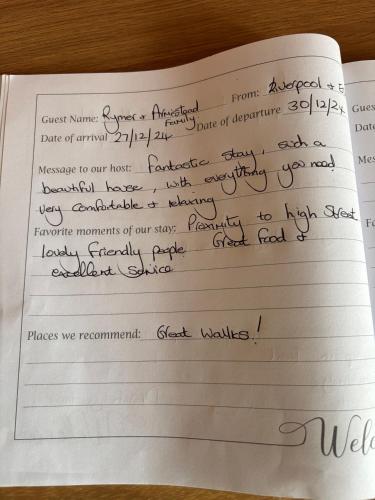 Guest Name: Rymer & Armistead Family From: Liverpool & E
Date of arrival 27/12/24 Date of departure 30/12/24
Message to our host: Fantastic stay, such a
beautiful house, with everything you need
very comfortable & relaxing
Favorite moments of our stay: Proximity to high Street
lovely friendly people Great food &
excellent service
Places we recommend: Great walks!
Welc
Gues
Date
Mes
Fav
Pla